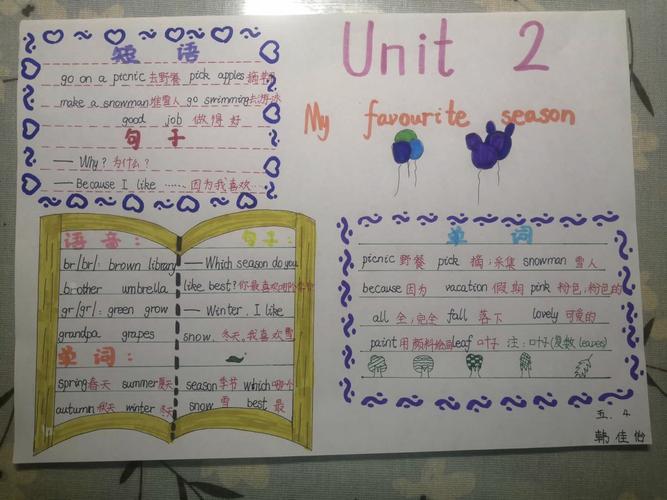 短 语
go on a picnic 去野餐 pick apples 摘苹果
make a snowman 堆雪人 go swimming 去游泳
good job 做得好
句子
— Why? 为什么?
— Because I like …… 因为我喜欢…
Unit 2
My favourite season
语音:
br/br/: brown library
brother umbrella
gr/gr/: green grow
grandpa grapes
单词:
spring 春天 summer 夏天
autumn 秋天 winter 冬天
句子:
— Which season do you
like best? 你最喜欢哪个季节
— Winter. I like
snow. 冬天,我喜欢雪
season 季节 which 哪个
snow 雪 best 最
单 词
picnic 野餐 pick 摘;采集 snowman 雪人
because 因为 vacation 假期 pink 粉色;粉色的
all 全;完全 fall 落下 lovely 可爱的
paint 用颜料绘画 leaf 叶子 注:叶子(复数 leaves)
五.4
韩佳怡